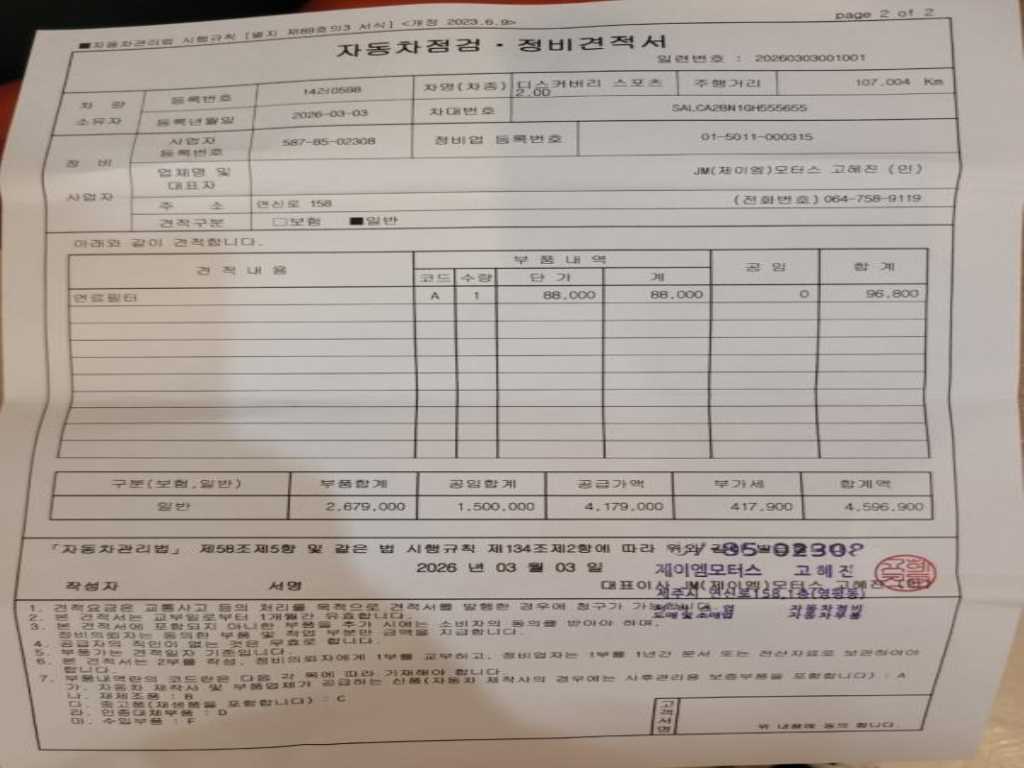 page 2 of 2
■자동차관리법 시행규칙 [별지 제89호의3 서식] <개정 2023.6.9>
자동차점검 · 정비견적서
일련번호 : 20260303001001
차 량 소유자
등록번호 14러0598 차명(차종) 디스커버리 스포츠 2.00 주행거리 107,004 Km
등록년월일 2026-03-03 차대번호 SALCA2BN1GH555655
정 비 사업자
사업자 등록번호 587-85-02308 정비업 등록번호 01-5011-000315
업체명 및 대표자 JM(제이엠)모터스 고혜진 (인)
주 소 연신로 158 (전화번호) 064-758-9119
견적구분 □보험 ■일반
아래와 같이 견적합니다.
견 적 내 용 부 품 내 역 공 임 합 계
코드 수량 단 가 계
연료필터 A 1 88,000 88,000 0 96,800
구분(보험,일반) 부품합계 공임합계 공급가액 부가세 합계액
일반 2,679,000 1,500,000 4,179,000 417,900 4,596,900
「자동차관리법」 제58조제5항 및 같은 법 시행규칙 제134조제2항에 따라 위와
85-02308
2026 년 03 월 03 일
제이엠모터스 고혜진
작성자 서명 대표이사 JM(제이엠)모터스 고혜진 (인)
제주시 연신로158,1층(영평동)
도매및소매업 자동차부품
1. 견적요금은 교통사고 등의 처리를 목적으로 견적서를 발행한 경우에 청구가 가능합니다.
2. 본 견적서는 교부일로부터 1개월간 유효합니다.
3. 본 견적서에 포함되지 아니한 부품을 추가 시에는 소비자의 동의를 받아야 하며,
정비의뢰자는 동의한 부품 및 작업 부분만 금액을 지급합니다.
4. 공급자의 직인이 없는 것은 무효로 합니다.
5. 부품가는 견적일자 기준입니다.
6. 본 견적서는 2부를 작성, 정비의뢰자에게 1부를 교부하고, 정비업자는 1부를 1년간 문서 또는 전산자료로 보관하여야
합니다.
7. 부품내역란의 코드란은 다음 각 목에 따라 기재해야 합니다.
가. 자동차 제작사 및 부품업체가 공급하는 신품(자동차 제작사의 경우에는 사후관리용 보증부품을 포함합니다) : A
나. 재제조품 : B
다. 중고품(재생품을 포함합니다) : C
라. 인증대체부품 : D
마. 수입부품 : F
고객서명
위 내용에 동의 합니다.